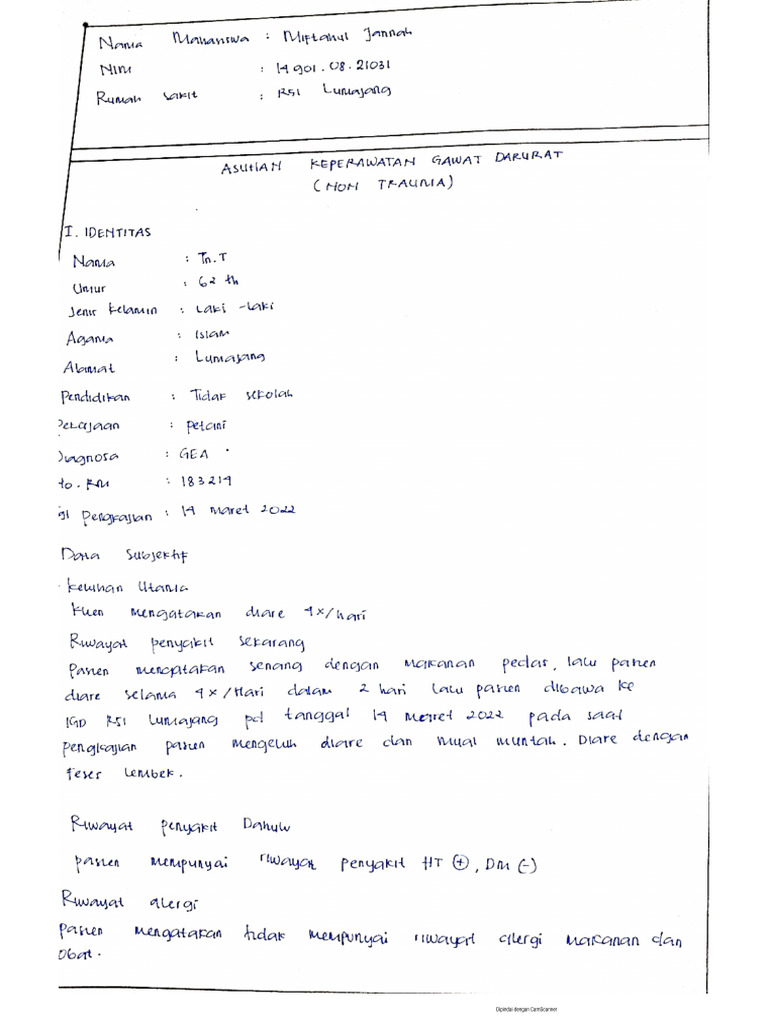 Nama Mahasiswa : Miftahul Jannah
NIM : 14901.08.21031
Rumah Sakit : RSI Lumajang
ASUHAN KEPERAWATAN GAWAT DARURAT
(NON TRAUMA)
I. IDENTITAS
Nama : Tn. T
Umur : 62 th
Jenis Kelamin : Laki-laki
Agama : Islam
Alamat : Lumajang
Pendidikan : Tidak sekolah
Pekerjaan : petani
Diagnosa : GEA
No. RM : 183214
Tgl Pengkajian : 14 Maret 2022
Data Subjektif
Keluhan Utama
Klien mengatakan diare 4x/hari
Riwayat penyakit sekarang
Pasien mengatakan senang dengan makanan pedas, lalu pasien
diare selama 4x/Hari dalam 2 hari lalu pasien dibawa ke
IGD RSI Lumajang pd tanggal 14 Maret 2022 pada saat
pengkajian pasien mengeluh diare dan mual muntah. Diare dengan
feses lembek.
Riwayat penyakit Dahulu
pasien mempunyai riwayat penyakit HT (+), DM (-)
Riwayat alergi
Pasien mengatakan tidak mempunyai riwayat alergi makanan dan
Obat.
Dipindai dengan CamScanner